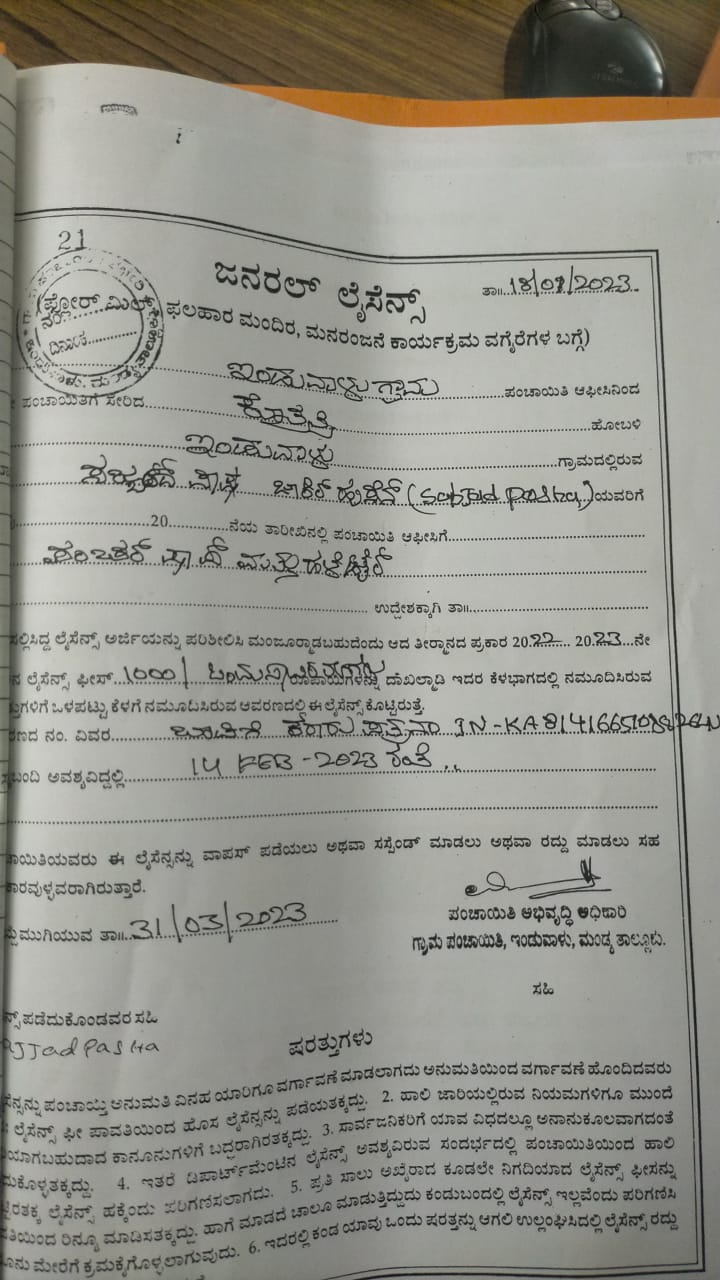 21
ಜನರಲ್ ಲೈಸೆನ್ಸ್
ತಾ॥ 18/01/2023
(ಫ್ಲೋರ್ ಮಿಲ್, ಫಲಹಾರ ಮಂದಿರ, ಮನರಂಜನೆ ಕಾರ್ಯಕ್ರಮ ವಗೈರೆಗಳ ಬಗ್ಗೆ)
ನಂ.
ದಿನಾಂಕ
ಇಂಡುವಾಳು ಗ್ರಾಮ ಪಂಚಾಯಿತಿ ಆಫೀಸಿನಿಂದ
ಪಂಚಾಯಿತಿಗೆ ಸೇರಿದ ಕೊತತ್ತಿ ಹೋಬಳಿ
ಇಂಡುವಾಳು ಗ್ರಾಮದಲ್ಲಿರುವ
ಪಾಷ (Sajjad Pasha) ಯವರಿಗೆ
20 ನೆಯ ತಾರೀಖಿನಲ್ಲಿ ಪಂಚಾಯಿತಿ ಆಫೀಸಿಗೆ
ಮತ್ತು
ಉದ್ದೇಶಕ್ಕಾಗಿ ತಾ॥
ಸಲ್ಲಿಸಿದ್ದ ಲೈಸೆನ್ಸ್ ಅರ್ಜಿಯನ್ನು ಪರಿಶೀಲಿಸಿ ಮಂಜೂರ್ಮಾಡಬಹುದೆಂದು ಆದ ತೀರ್ಮಾನದ ಪ್ರಕಾರ 2022 2023 ನೇ
ಲೈಸೆನ್ಸ್ ಫೀಸ್ 1000/ ಒಂದು ಸಾವಿರ ದಾಖಲ್ಮಾಡಿ ಇದರ ಕೆಳಭಾಗದಲ್ಲಿ ನಮೂದಿಸಿರುವ
ಒಳಪಟ್ಟು ಕೆಳಗೆ ನಮೂದಿಸಿರುವ ಆವರಣದಲ್ಲಿ ಈ ಲೈಸೆನ್ಸ್ ಕೊಟ್ಟಿರುತ್ತೆ.
ನಂ. ವಿವರ ಬಾಡಿಗೆ ಕರಾರು ಪತ್ರ
ಅವಶ್ಯವಿದ್ದಲ್ಲಿ 14 FEB - 2023 ರಂತೆ ..
ಈ ಲೈಸೆನ್ಸನ್ನು ವಾಪಸ್ ಪಡೆಯಲು ಅಥವಾ ಸಸ್ಪೆಂಡ್ ಮಾಡಲು ಅಥವಾ ರದ್ದು ಮಾಡಲು ಸಹ
ತಾ॥ 31/03/2023
ಪಂಚಾಯಿತಿ ಅಭಿವೃದ್ಧಿ ಅಧಿಕಾರಿ
ಗ್ರಾಮ ಪಂಚಾಯಿತಿ, ಇಂಡುವಾಳು, ಮಂಡ್ಯ ತಾಲ್ಲೂಕು.
ಸಹಿ
ಪಡೆದುಕೊಂಡವರ ಸಹಿ
Pasha
ಷರತ್ತುಗಳು
ಪಂಚಾಯ್ತಿ ಅನುಮತಿ ವಿನಹ ಯಾರಿಗೂ ವರ್ಗಾವಣೆ ಮಾಡಲಾಗದು ಅನುಮತಿಯಿಂದ ವರ್ಗಾವಣೆ ಹೊಂದಿದವರು
ಲೈಸೆನ್ಸ್ ಫೀ ಪಾವತಿಯಿಂದ ಹೊಸ ಲೈಸೆನ್ಸನ್ನು ಪಡೆಯತಕ್ಕದ್ದು. 2. ಹಾಲಿ ಜಾರಿಯಲ್ಲಿರುವ ನಿಯಮಗಳಿಗೂ ಮುಂದೆ
ಕಾನೂನುಗಳಿಗೆ ಬದ್ಧರಾಗಿರತಕ್ಕದ್ದು. 3. ಸಾರ್ವಜನಿಕರಿಗೆ ಯಾವ ವಿಧದಲ್ಲೂ ಅನಾನುಕೂಲವಾಗದಂತೆ
4. ಇತರೆ ಡಿಪಾರ್ಟ್‌ಮೆಂಟಿನ ಲೈಸೆನ್ಸ್ ಅವಶ್ಯವಿರುವ ಸಂದರ್ಭದಲ್ಲಿ ಪಂಚಾಯಿತಿಯಿಂದ ಹಾಲಿ
ಲೈಸೆನ್ಸ್ ಹಕ್ಕೆಂದು ಪರಿಗಣಿಸಲಾಗದು. 5. ಪ್ರತಿ ಸಾಲು ಅಖೈರಾದ ಕೂಡಲೇ ನಿಗದಿಯಾದ ಲೈಸೆನ್ಸ್ ಫೀಸನ್ನು
ರಿನ್ಯೂ ಮಾಡಿಸತಕ್ಕದ್ದು. ಹಾಗೆ ಮಾಡದೆ ಚಾಲೂ ಮಾಡುತ್ತಿದ್ದುದು ಕಂಡುಬಂದಲ್ಲಿ ಲೈಸೆನ್ಸ್ ಇಲ್ಲವೆಂದು ಪರಿಗಣಿಸಿ
ಮೇರೆಗೆ ಕ್ರಮಕೈಗೊಳ್ಳಲಾಗುವುದು. 6. ಇದರಲ್ಲಿ ಕಂಡ ಯಾವು ಒಂದು ಷರತ್ತನ್ನು ಆಗಲಿ ಉಲ್ಲಂಘಿಸಿದಲ್ಲಿ ಲೈಸೆನ್ಸ್ ರದ್ದು